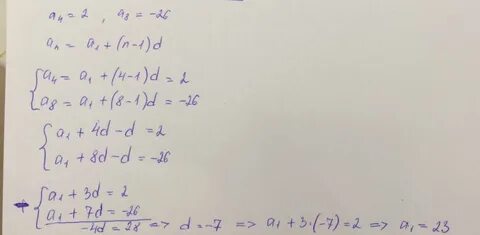 a₄ = 2 , a₈ = -26
aₙ = a₁ + (n-1)d
a₄ = a₁ + (4-1)d = 2
a₈ = a₁ + (8-1)d = -26
a₁ + 4d - d = 2
a₁ + 8d - d = -26
a₁ + 3d = 2
a₁ + 7d = -26
-4d = 28 => d = -7 => a₁ + 3·(-7) = 2 => a₁ = 23